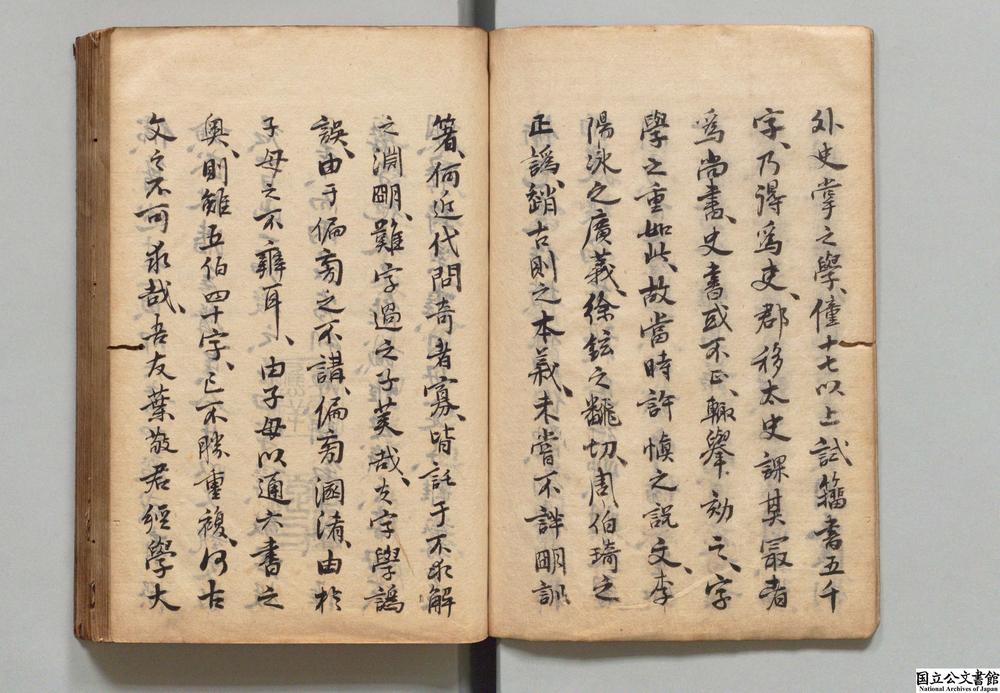 外史掌之學僮十七以上試籀書五千
字、乃得為吏、郡移太史課其冣者
為尚書、史書或不正、輙舉劾之、字
學之重如此、故當時許慎之説文、李
陽冰之廣義、徐鉉之飜切、周伯琦之
正譌、趙古則之本義、未嘗不詳明訓
箸、何近代問奇者寡、皆託于不求解
之淵明、難字過之子美哉、夫字學譌
誤、由于偏旁之不講、偏旁溷淆、由於
子母之不辨耳、由子母以通六書之
奧、則雖五伯四十字、已不勝重複、何古
文之不可求哉、吾友葉敬君經學大
国立公文書館
National Archives of Japan